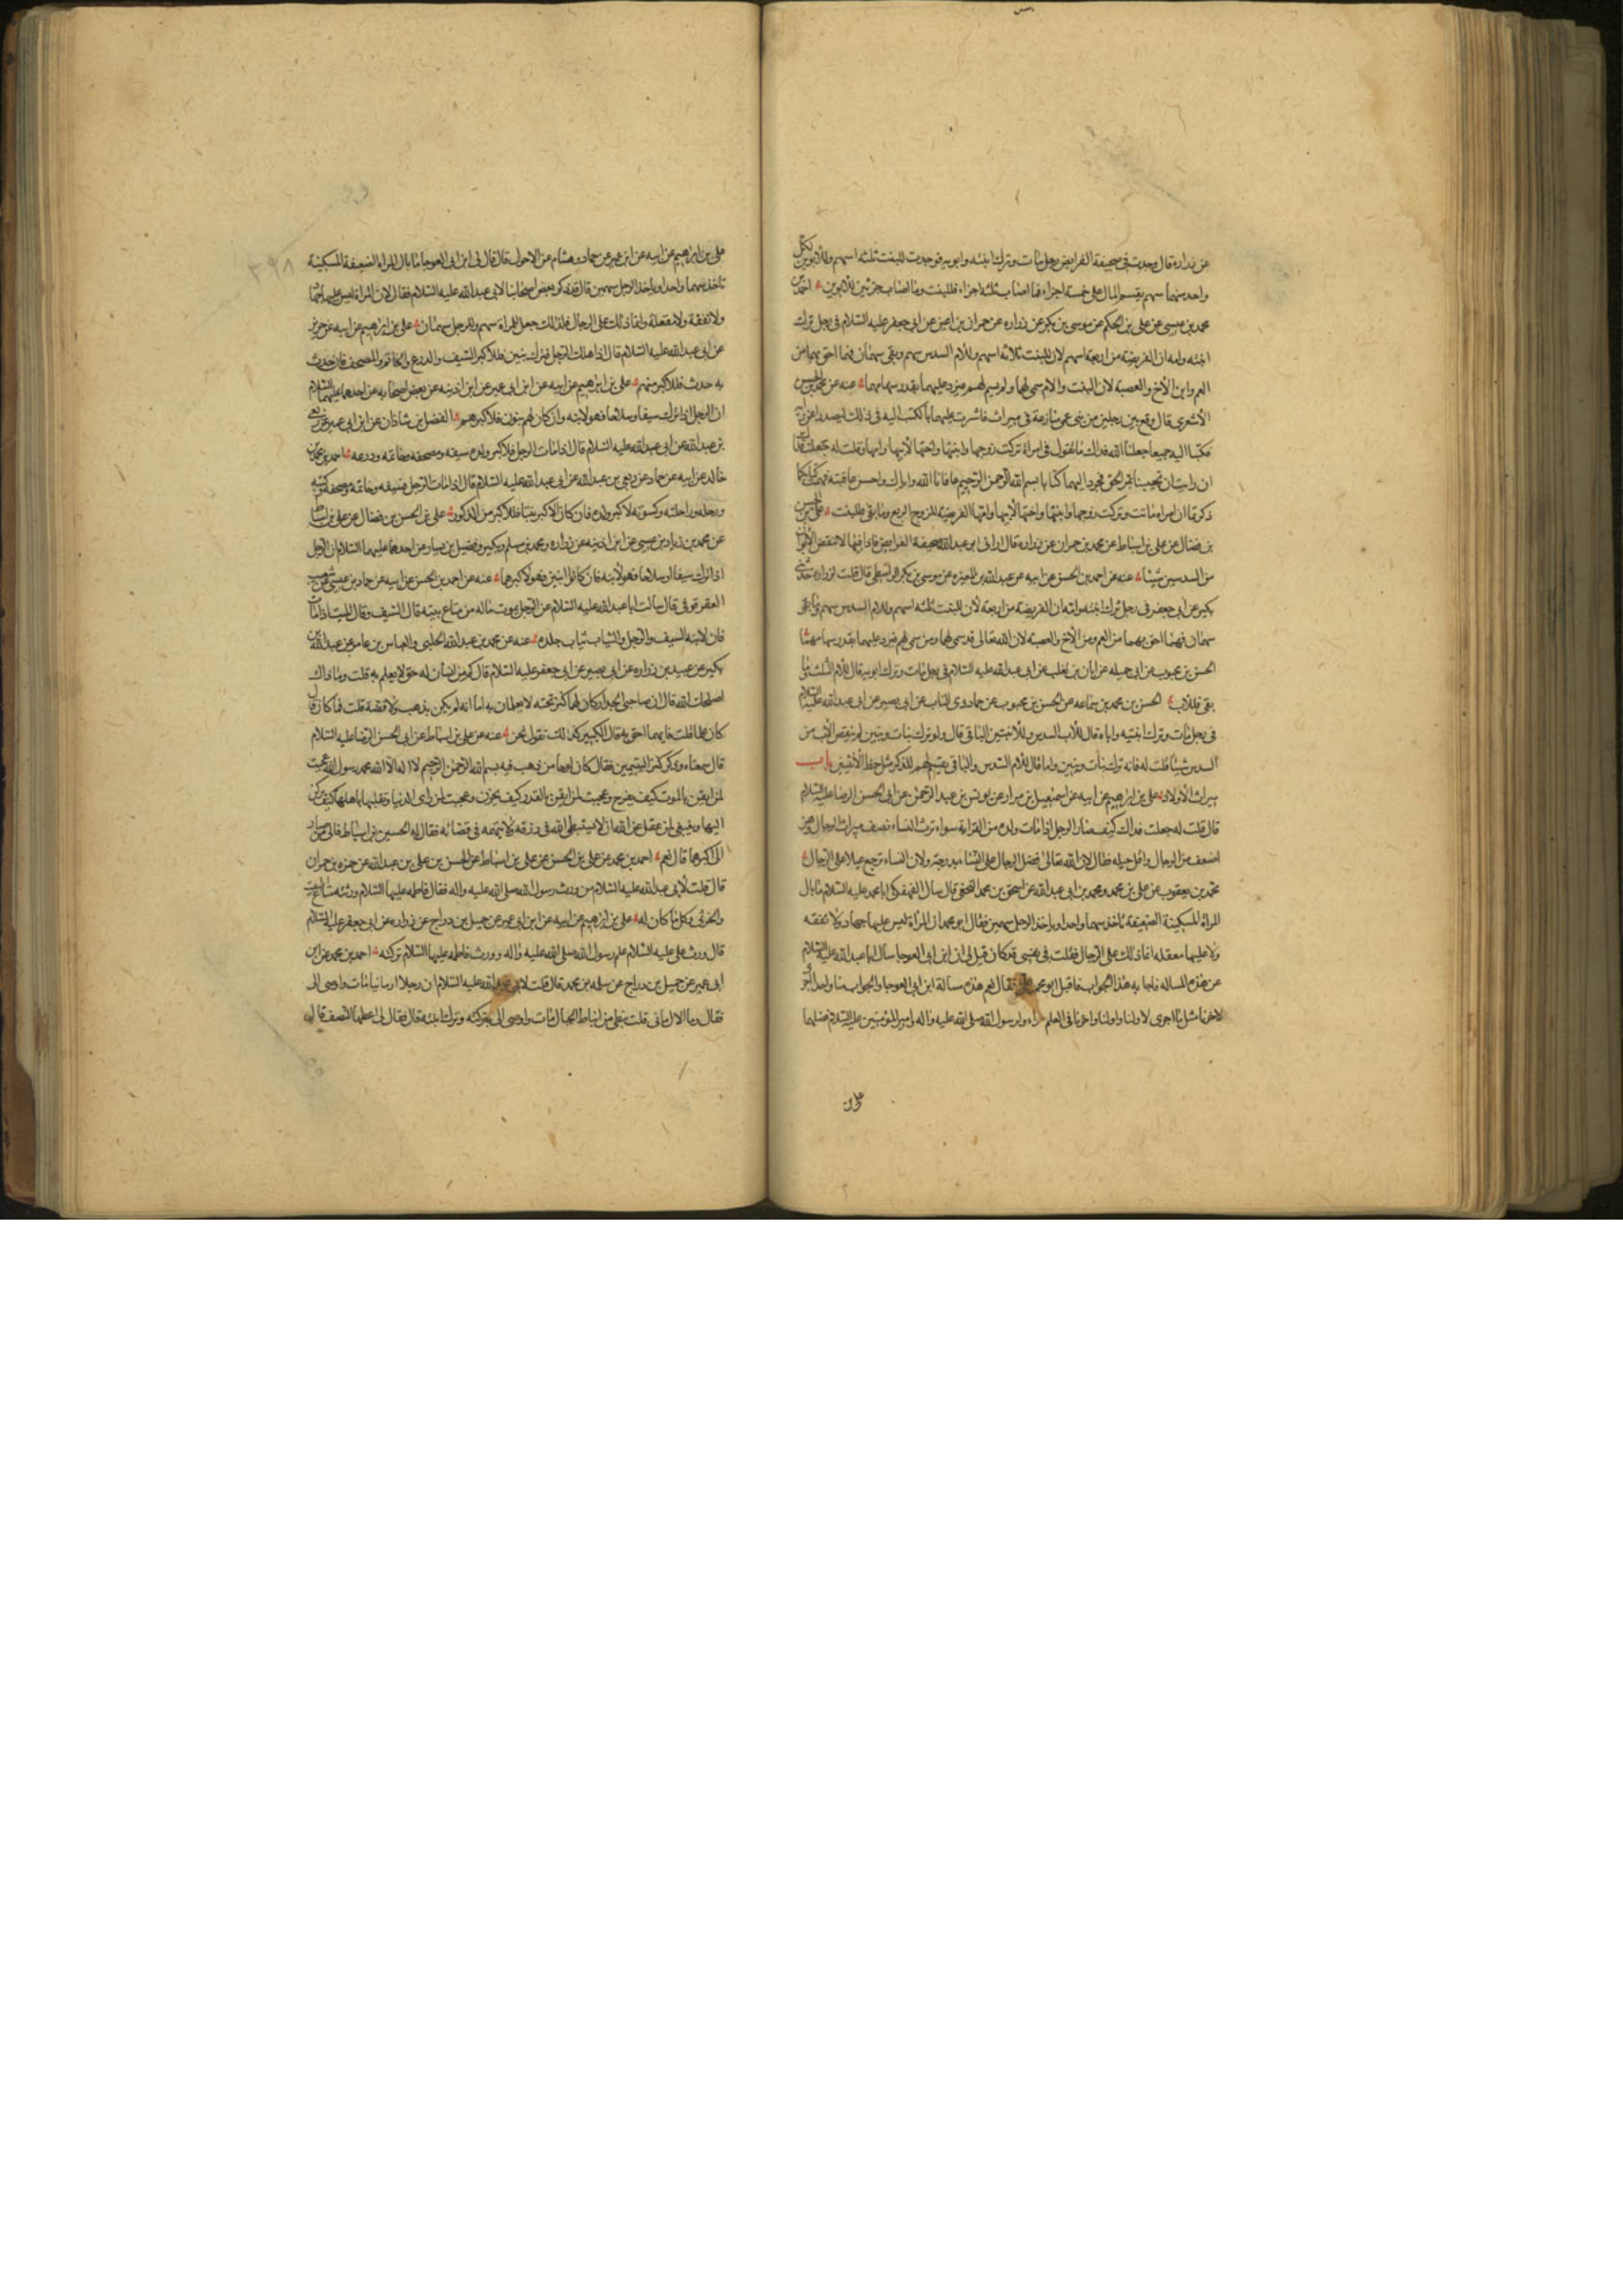 عن زراره قال وجدت فى صحيفة الفرايض رجل مات وترك ابنته وابويه فوجدت للبنت ثلثه اسهم وللابوين لكل
واحد منهما سهم يقسم المال على خمسة اجزاء فما اصاب ثلثه اجزاء فللبنت وما اصاب جزئين للابوين احمد بن
محمد بن عيسى عن على بن الحكم عن موسى بن بكر عن زراره عن حمران بن اعين عن ابى جعفر عليه السلام فى رجل ترك
ابنته وامه ان الفريضة من اربعة اسهم لان للبنت ثلاثة اسهم وللام السدس سهم وبقى سهمان فهما احق بهما من
العم وابن الاخ والعصبة لان البنت والام سمى لهما ولم يسم لهم فيرد عليهما بقدر سهامهما عنه عن محمد بن الحسن
الاشعرى قال وقع بين رجلين من بنى عمى منازعة فى ميراث فاشرت عليهما بالكتب اليه فى ذلك ليصدرا عن رايه
فكتبا اليه جميعا جعلنا الله فداك ما تقول فى امراة تركت زوجها وابنتها واختها لابيها وامها وقلت له جعلت فداك
ان رايت ان تجيبنا بمر الحق فخرج اليهما كتابا بسم الله الرحمن الرحيم عافانا الله واياك واحسن عاقبته فهمت كتابكما
ذكرتما ان امراه ماتت وتركت زوجها وابنتها واختها لابيها وامها الفريضة للزوج الربع وما بقى فللبنت على بن الحسن
بن فضال عن على بن اسباط عن محمد بن حمران عن زراره قال ارانى ابو عبدالله صحيفة الفرايض فاذا فيها لا ينقص الابوان
من السدسين شيئا عنه عن احمد بن الحسن عن ابيه عن عبدالله بن المغيره عن موسى بن بكر الواسطى قال قلت لزراره حدثنى
بكير عن ابى جعفر فى رجل ترك ابنته وامه ان الفريضة من اربعة لان للبنت ثلثه اسهم وللام السدس سهم وما بقى
سهمان فهما احق بهما من العم ومن الاخ والعصبة لان الله تعالى قد سمى لهما ومن سمى لهم فيرد عليهما بقدر سهامهما
الحسن بن محبوب عن ابى جميله عن ابان بن تغلب عن ابى عبدالله عليه السلام فى رجل مات وترك ابويه قال للام الثلث وما
بقى فللاب الحسن بن محمد بن سماعه عن الحسن بن محبوب عن حماد ذى الناب عن ابى بصير عن ابى عبدالله عليه السلام
فى رجل مات وترك ابنتيه واباه قال للاب السدس وللابنتين الباقى قال ولو ترك بنات وبنين لم ينقص الاب من
السدس شيئا قلت له فانه ترك بنات وبنين واما قال للام السدس والباقى يقسم لهم للذكر مثل حظ الانثيين باب
ميراث الاولاد على بن ابرهيم عن ابيه عن اسمعيل بن مرار عن يونس بن عبد الرحمن عن ابى الحسن الرضا عليه السلام
قال قلت له جعلت فداك كيف صار الرجل اذا مات وولده من القرابة سواء ترث النساء نصف ميراث الرجال وهن
اضعف من الرجال واقل حيله فقال لان الله تعالى فضل الرجال على النساء بدرجة ولان النساء ترجع عيالا على الرجال
محمد بن يعقوب عن على بن محمد ومحمد بن ابى عبدالله عن اسحق بن محمد النخعى قال سال الفهفكى ابا محمد عليه السلام ما بال
المراة المسكينة الضعيفة تاخذ سهما واحدا وياخذ الرجل سهمين فقال ابو محمد ان المراة ليس عليها جهاد ولا نفقه
ولا عليها معقله انما ذلك على الرجال فقلت فى نفسى قد كان قيل لى ان ابن ابى العوجا سال ابا عبدالله عليه السلام
عن هذه المساله فاجابه بهذا الجواب فاقبل ابو محمد على فقال نعم هذه مسالة ابن ابى العوجا والجواب منا واحد اجرى
لاخرنا مثل ما اجرى لاولنا واولنا واخرنا فى العلم سواء ولرسول الله صلى الله عليه واله ولامير المؤمنين عليه السلام فضلهما
على بن ابرهيم عن ابيه عن ابن ابى عمير عن حماد وهشام عن الاحول قال قال لى ابن ابى العوجا ما بال المراه الضعيفة المسكينة
تاخذ سهما واحدا وياخذ الرجل سهمين قال فذكر بعض اصحابنا لابى عبدالله عليه السلام فقال لان المراة ليس عليها جهاد
ولا نفقة ولا معقلة وانما ذلك على الرجال فلذلك جعل للمراة سهم وللرجل سهمان على بن ابرهيم عن ابيه عن حريز
عن ابى عبدالله عليه السلام قال اذا هلك الرجل فترك بنين فللاكبر السيف والدرع والخاتم والمصحف فان حدث
به حدث فللاكبر منهم على بن ابرهيم عن ابيه عن ابن ابى عمير عن ابن اذينه عن بعض اصحابه عن احدهما عليهما السلام
ان الرجل اذا ترك سيفا وسلاحا فهو لابنه وان كان لهم بنون فلاكبرهم الفضل بن شاذان عن ابن ابى عمير عن ربعى
بن عبدالله عن ابى عبدالله عليه السلام قال اذا مات الرجل فلاكبر ولده سيفه ومصحفه وخاتمه ودرعه احمد بن محمد بن
خالد عن ابيه عن حماد عن ربعى بن عبدالله عن ابى عبدالله عليه السلام قال اذا مات الرجل فسيفه وخاتمه ومصحفه وكتبه
ورحله وراحلته وكسوته لاكبر ولده فان كان الاكبر بنتا فللاكبر من الذكور على بن الحسن بن فضال عن على بن اسباط
عن محمد بن زياد بن عيسى عن ابن اذينه عن زراره ومحمد بن مسلم وبكير وفضيل بن يسار عن احدهما عليهما السلام ان الرجل
اذا ترك سيفا او سلاحا فهو لابنه فان كانوا اثنين فهو لاكبرهما عنه عن احمد بن الحسن عن ابيه عن حماد بن عيسى عن شعيب
العقرقوفى قال سالت ابا عبدالله عليه السلام عن الرجل يموت ماله من متاع بيته قال السيف وقال الميت اذا مات
فان لابنه السيف والرحل والثياب ثياب جلده عنه عن محمد بن عبدالله الحلبى والعباس بن عامر عن عبدالله بن
بكير عن عبيد بن زراره عن ابى بصير عن ابى جعفر عليه السلام قال كم من انسان له حق لا يعلم به قلت وما ذاك
اصلحك الله قال ان صاحبى الجدار كان لهما كنز تحته لا يعلمان به اما انه لم يكن بذهب ولا فضة قلت فما كان قال
كان علما قلت فايهما احق به قال الكبير كذلك نقول نحن عنه عن على بن اسباط عن ابى الحسن الرضا عليه السلام
قال سمعناه وذكر كنز اليتيمين فقال كان لوحا من ذهب فيه بسم الله الرحمن الرحيم لا اله الا الله محمد رسول الله عجبت
لمن ايقن بالموت كيف يفرح وعجبت لمن ايقن بالقدر كيف يحزن وعجبت لمن راى الدنيا وتقلبها باهلها كيف يركن
اليها وينبغى لمن عقل عن الله ان لا يستبطى الله فى رزقه ولا يتهمه فى قضائه فقال له الحسين بن اسباط فالى من صار
الى اكبرهما قال نعم احمد بن محمد عن على بن الحسن عن على بن اسباط عن الحسن بن على بن عبدالله عن حمزه بن حمران
قال قلت لابى عبدالله عليه السلام من ورث رسول الله صلى الله عليه واله فقال فاطمه عليها السلام ورثته متاع البيت
والخرثى وكل ما كان له على بن ابرهيم عن ابيه عن ابن ابى عمير عن جميل بن دراج عن زراره عن ابى جعفر عليه السلام
قال ورث على عليه السلام علم رسول الله صلى الله عليه واله وورثت فاطمه عليها السلام تركته احمد بن محمد عن ابن
ابى عمير عن جميل بن دراج عن سلمه بن محمد قال قلت لابى عبدالله عليه السلام ان رجلا ارمانيا مات واوصى الى
فقال وما الارمانى قلت نبطى من انباط الجبال مات واوصى الى بتركته وترك ابنته قال فقال لى اعطها النصف قال